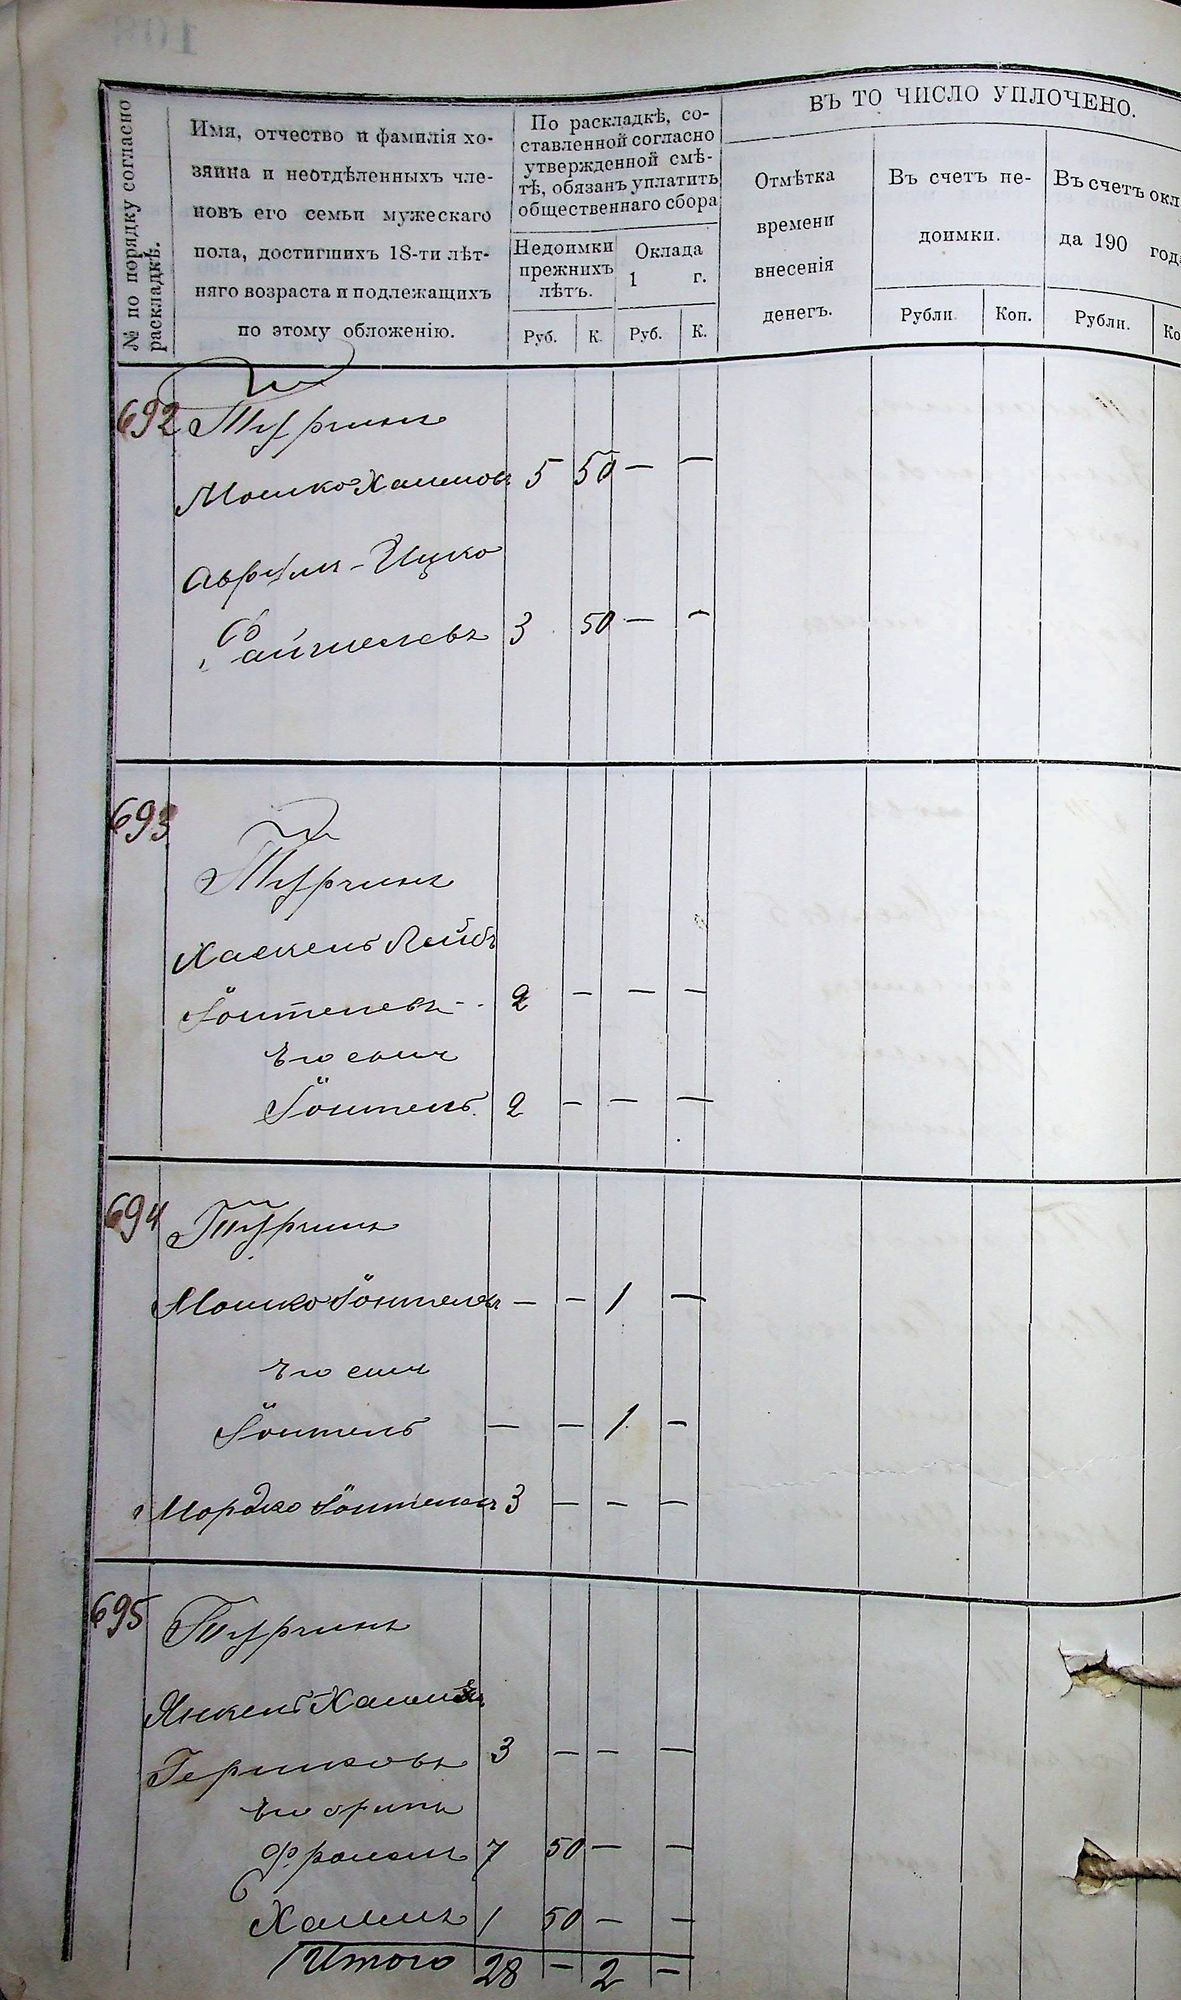 № по порядку согласно раскладкѣ.
Имя, отчество и фамилія хо-
зяина и неотдѣленныхъ чле-
новъ его семьи мужескаго
пола, достигшихъ 18-ти лѣт-
няго возраста и подлежащихъ
по этому обложенію.
По раскладкѣ, со-
ставленной согласно
утвержденной смѣ-
тѣ, обязанъ уплатить
общественнаго сбора
Недоимки
прежнихъ
лѣтъ.
Оклада
1 г.
Руб. К. Руб. К.
ВЪ ТО ЧИСЛО УПЛОЧЕНО.
Отмѣтка
времени
внесенія
денегъ.
Въ счетъ не-
доимки.
Рубли Коп.
Въ счетъ окл
да 190 год
Рубли. Ко
692 Турчинъ
Мошко Хаимовъ 5 50 — —
Аврумъ-Ицко
Файшелевъ 3 50 — —
693
Турчинъ
Хаскель Лейбъ
Іонтелевъ 2 — — —
Его сынъ
Іонтель 2 — — —
694 Турчинъ
Мошко Іонтелевъ — — 1 —
Его сынъ
Іонтель — — 1 —
Мордко Іонтелевъ 3 — — —
695 Турчинъ
Янкель Хаимъ
Гершковъ 3 — — —
Его братъ
Фроимъ 7 50 — —
Хаимъ 1 50 — —
Итого 28 — 2 —